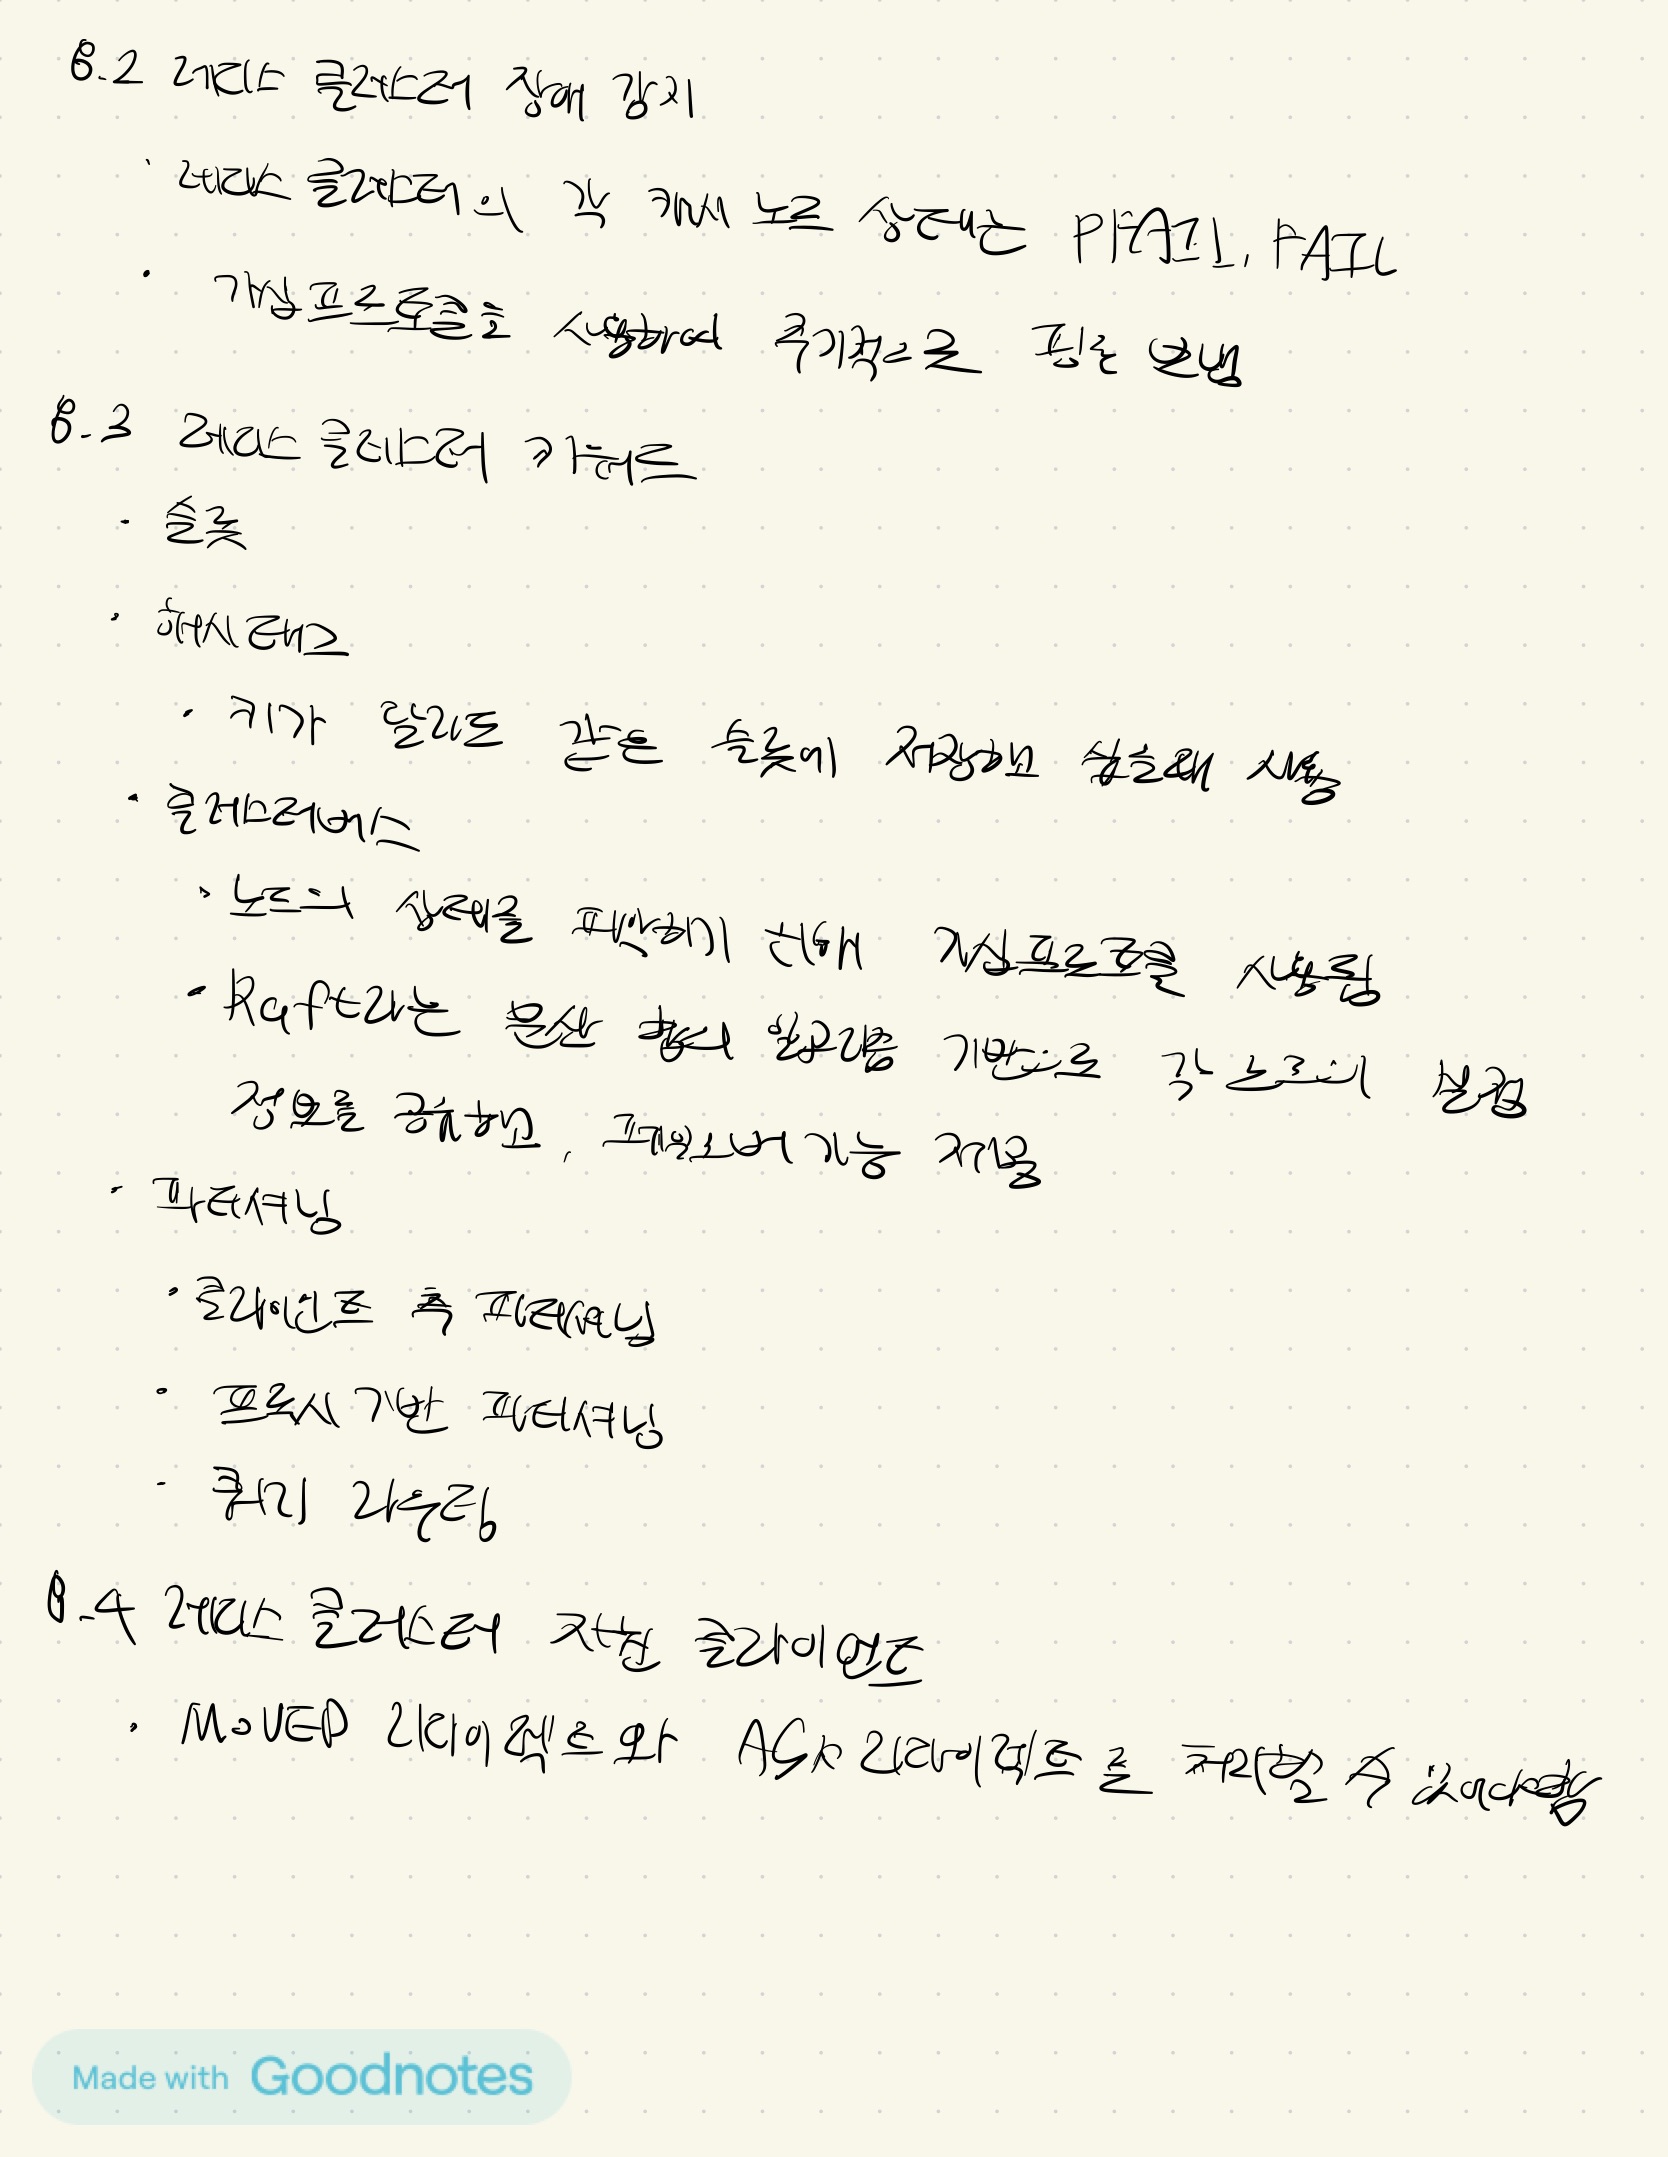 8.2 레디스 클러스터 장애 감지
· 레디스 클러스터의 각 캐시 노드 상태는 PFAIL, FAIL
· 가십프로토콜을 사용하여 주기적으로 핑을 보냄
8.3 레디스 클러스터 키워드
· 슬롯
· 해시태그
· 키가 달라도 같은 슬롯에 저장하고 싶을때 사용
· 클러스터버스
· 노드의 상태를 파악하기 위해 가십프로토콜 사용됨
· Raft라는 분산 합의 알고리즘 기반으로 각 노드의
정보를 공유하고, 페일오버 기능 제공
· 파티셔닝
· 클라이언트 측 파티셔닝
· 프록시 기반 파티셔닝
· 쿼리 라우팅
8.4 레디스 클러스터 지원 클라이언트
· MOVED 리다이렉트와 ASK 리다이렉트를 처리할 수 있어야함
Made with Goodnotes